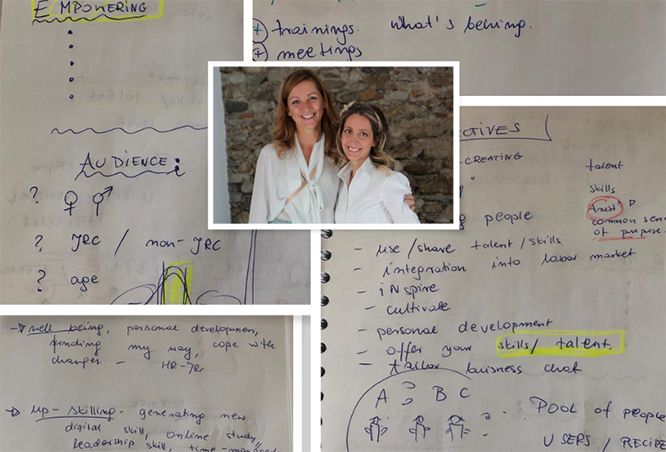 EMPOWERING
AUDIENCE:
? ♀ ♂
? JRC / non-JRC
? age
+ trainings. What's behing.
+ meetings
CTIVES
-CREATING
people
- use/share talent/skills
- integration into labor market
- iNspire
- cultivate
- personal development
- offer your skills/talent
- tailor buisness chat
A B C
POOL of people
USERS / RECIPE
talent
skills
trust
common sen
of purpose.
→ well being, personal developmen,
finding my way, cope with
changes -
→ up-skilling - generating new
digital skill, online study,
leadership skill, time-manag